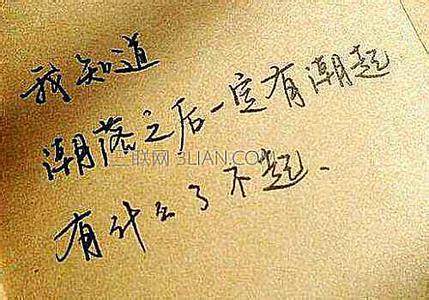 我知道
潮落之后一定有潮起
三联网 3LIAN.COM
有什么了不起、